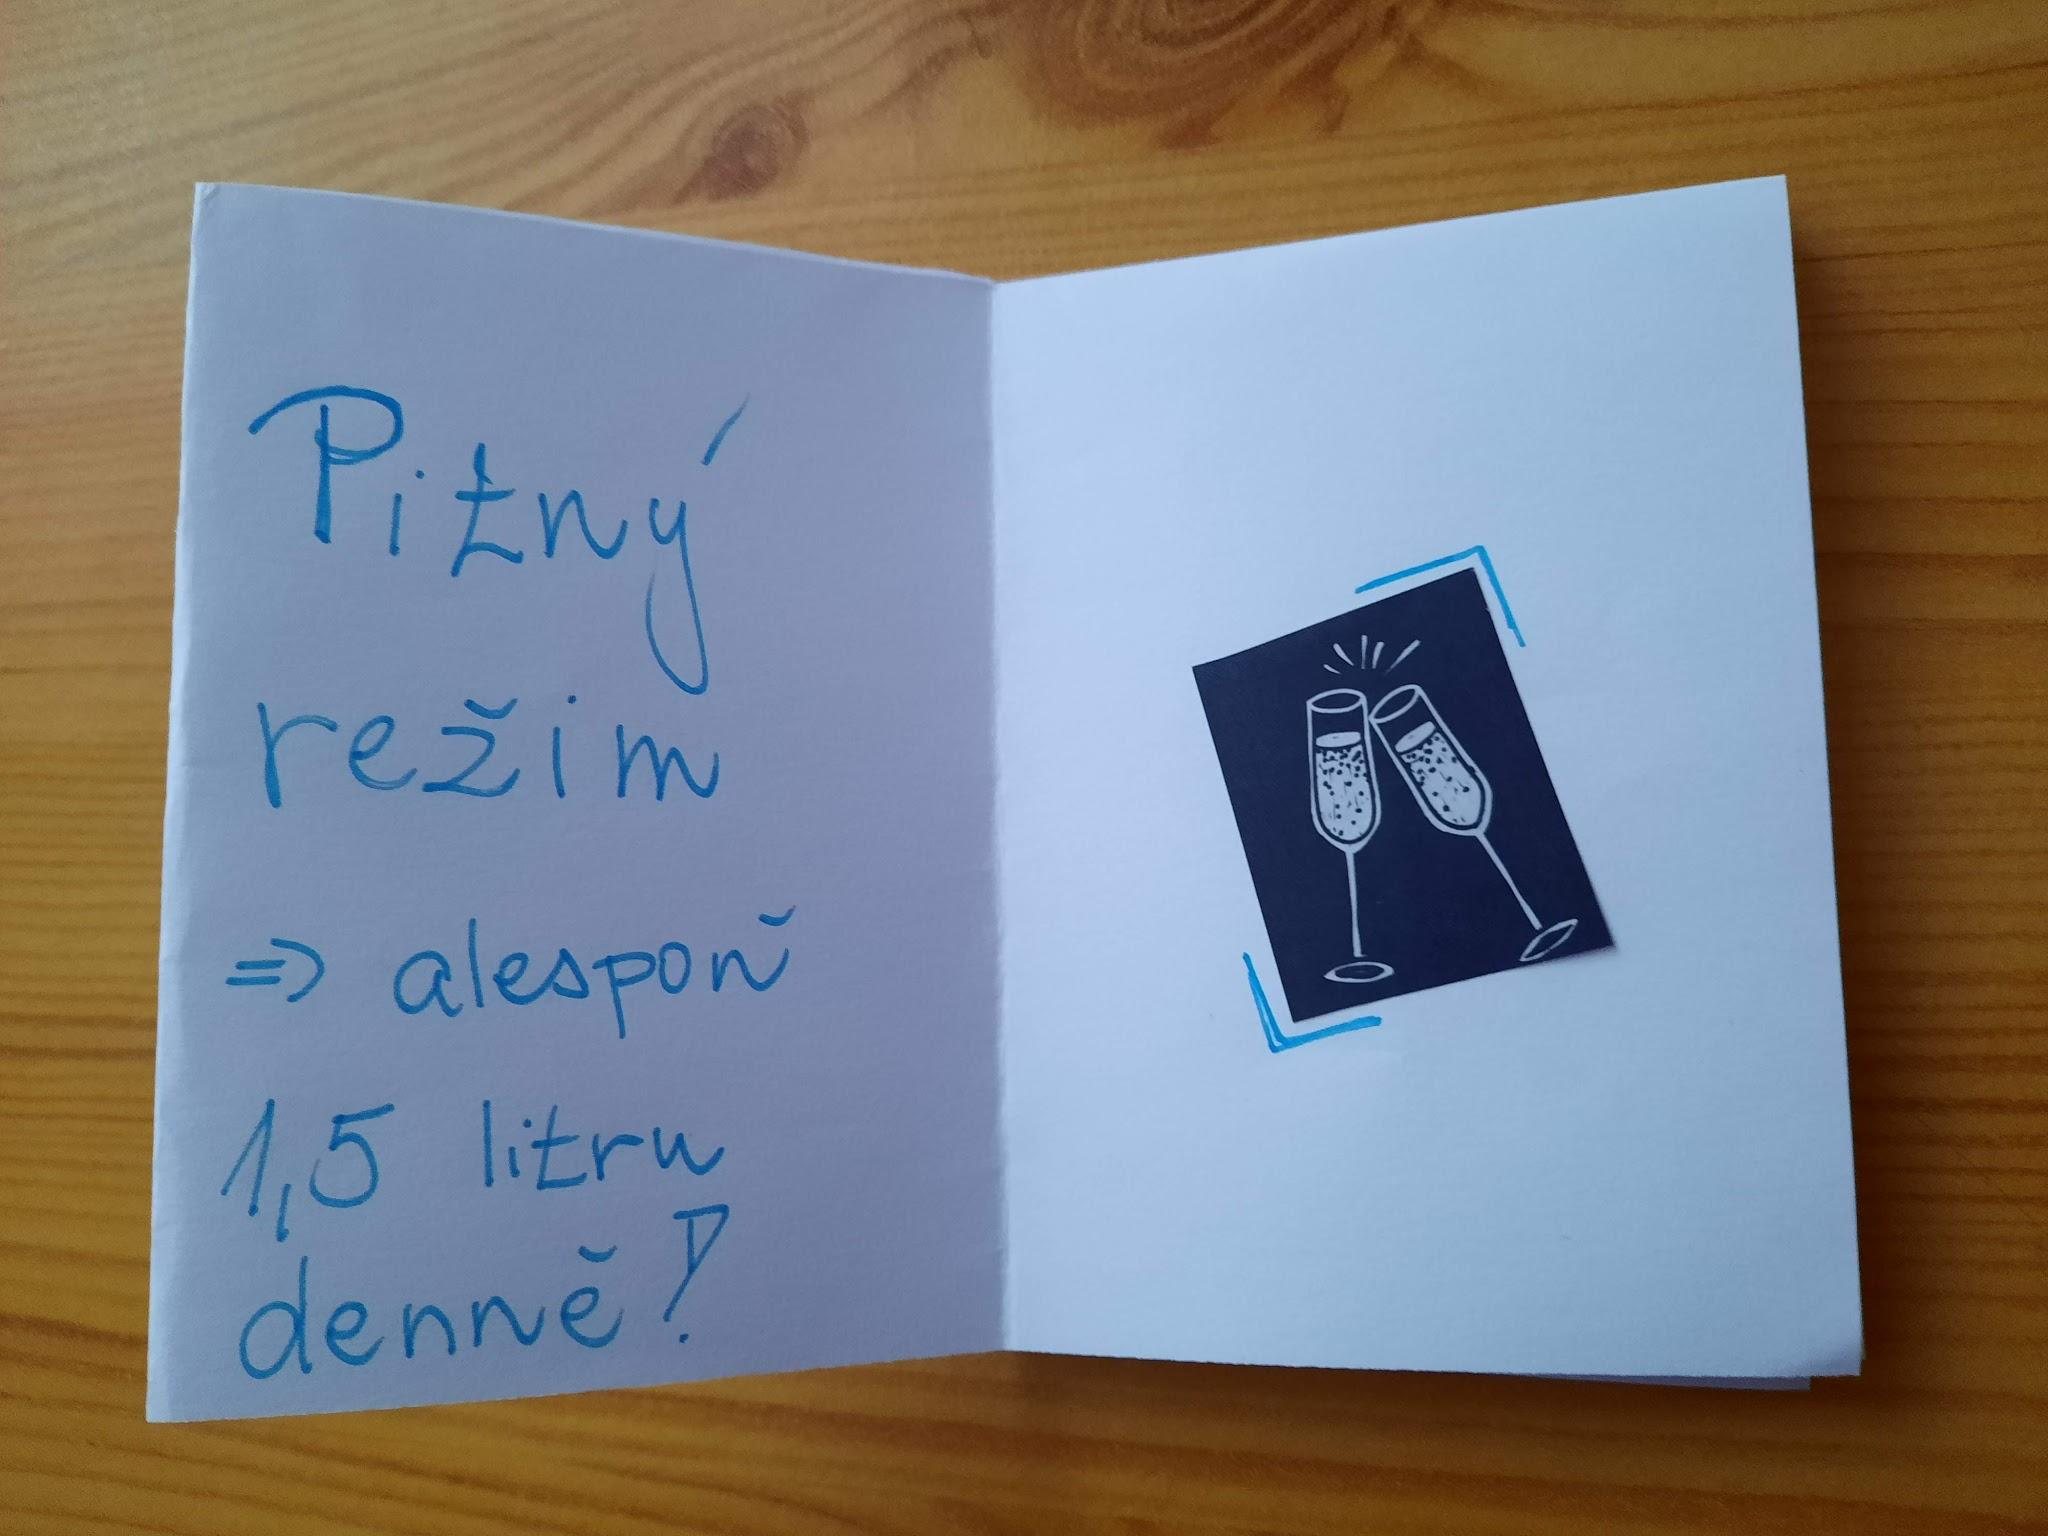 Pitný
režim
=> alespoň
1,5 litru
denně!